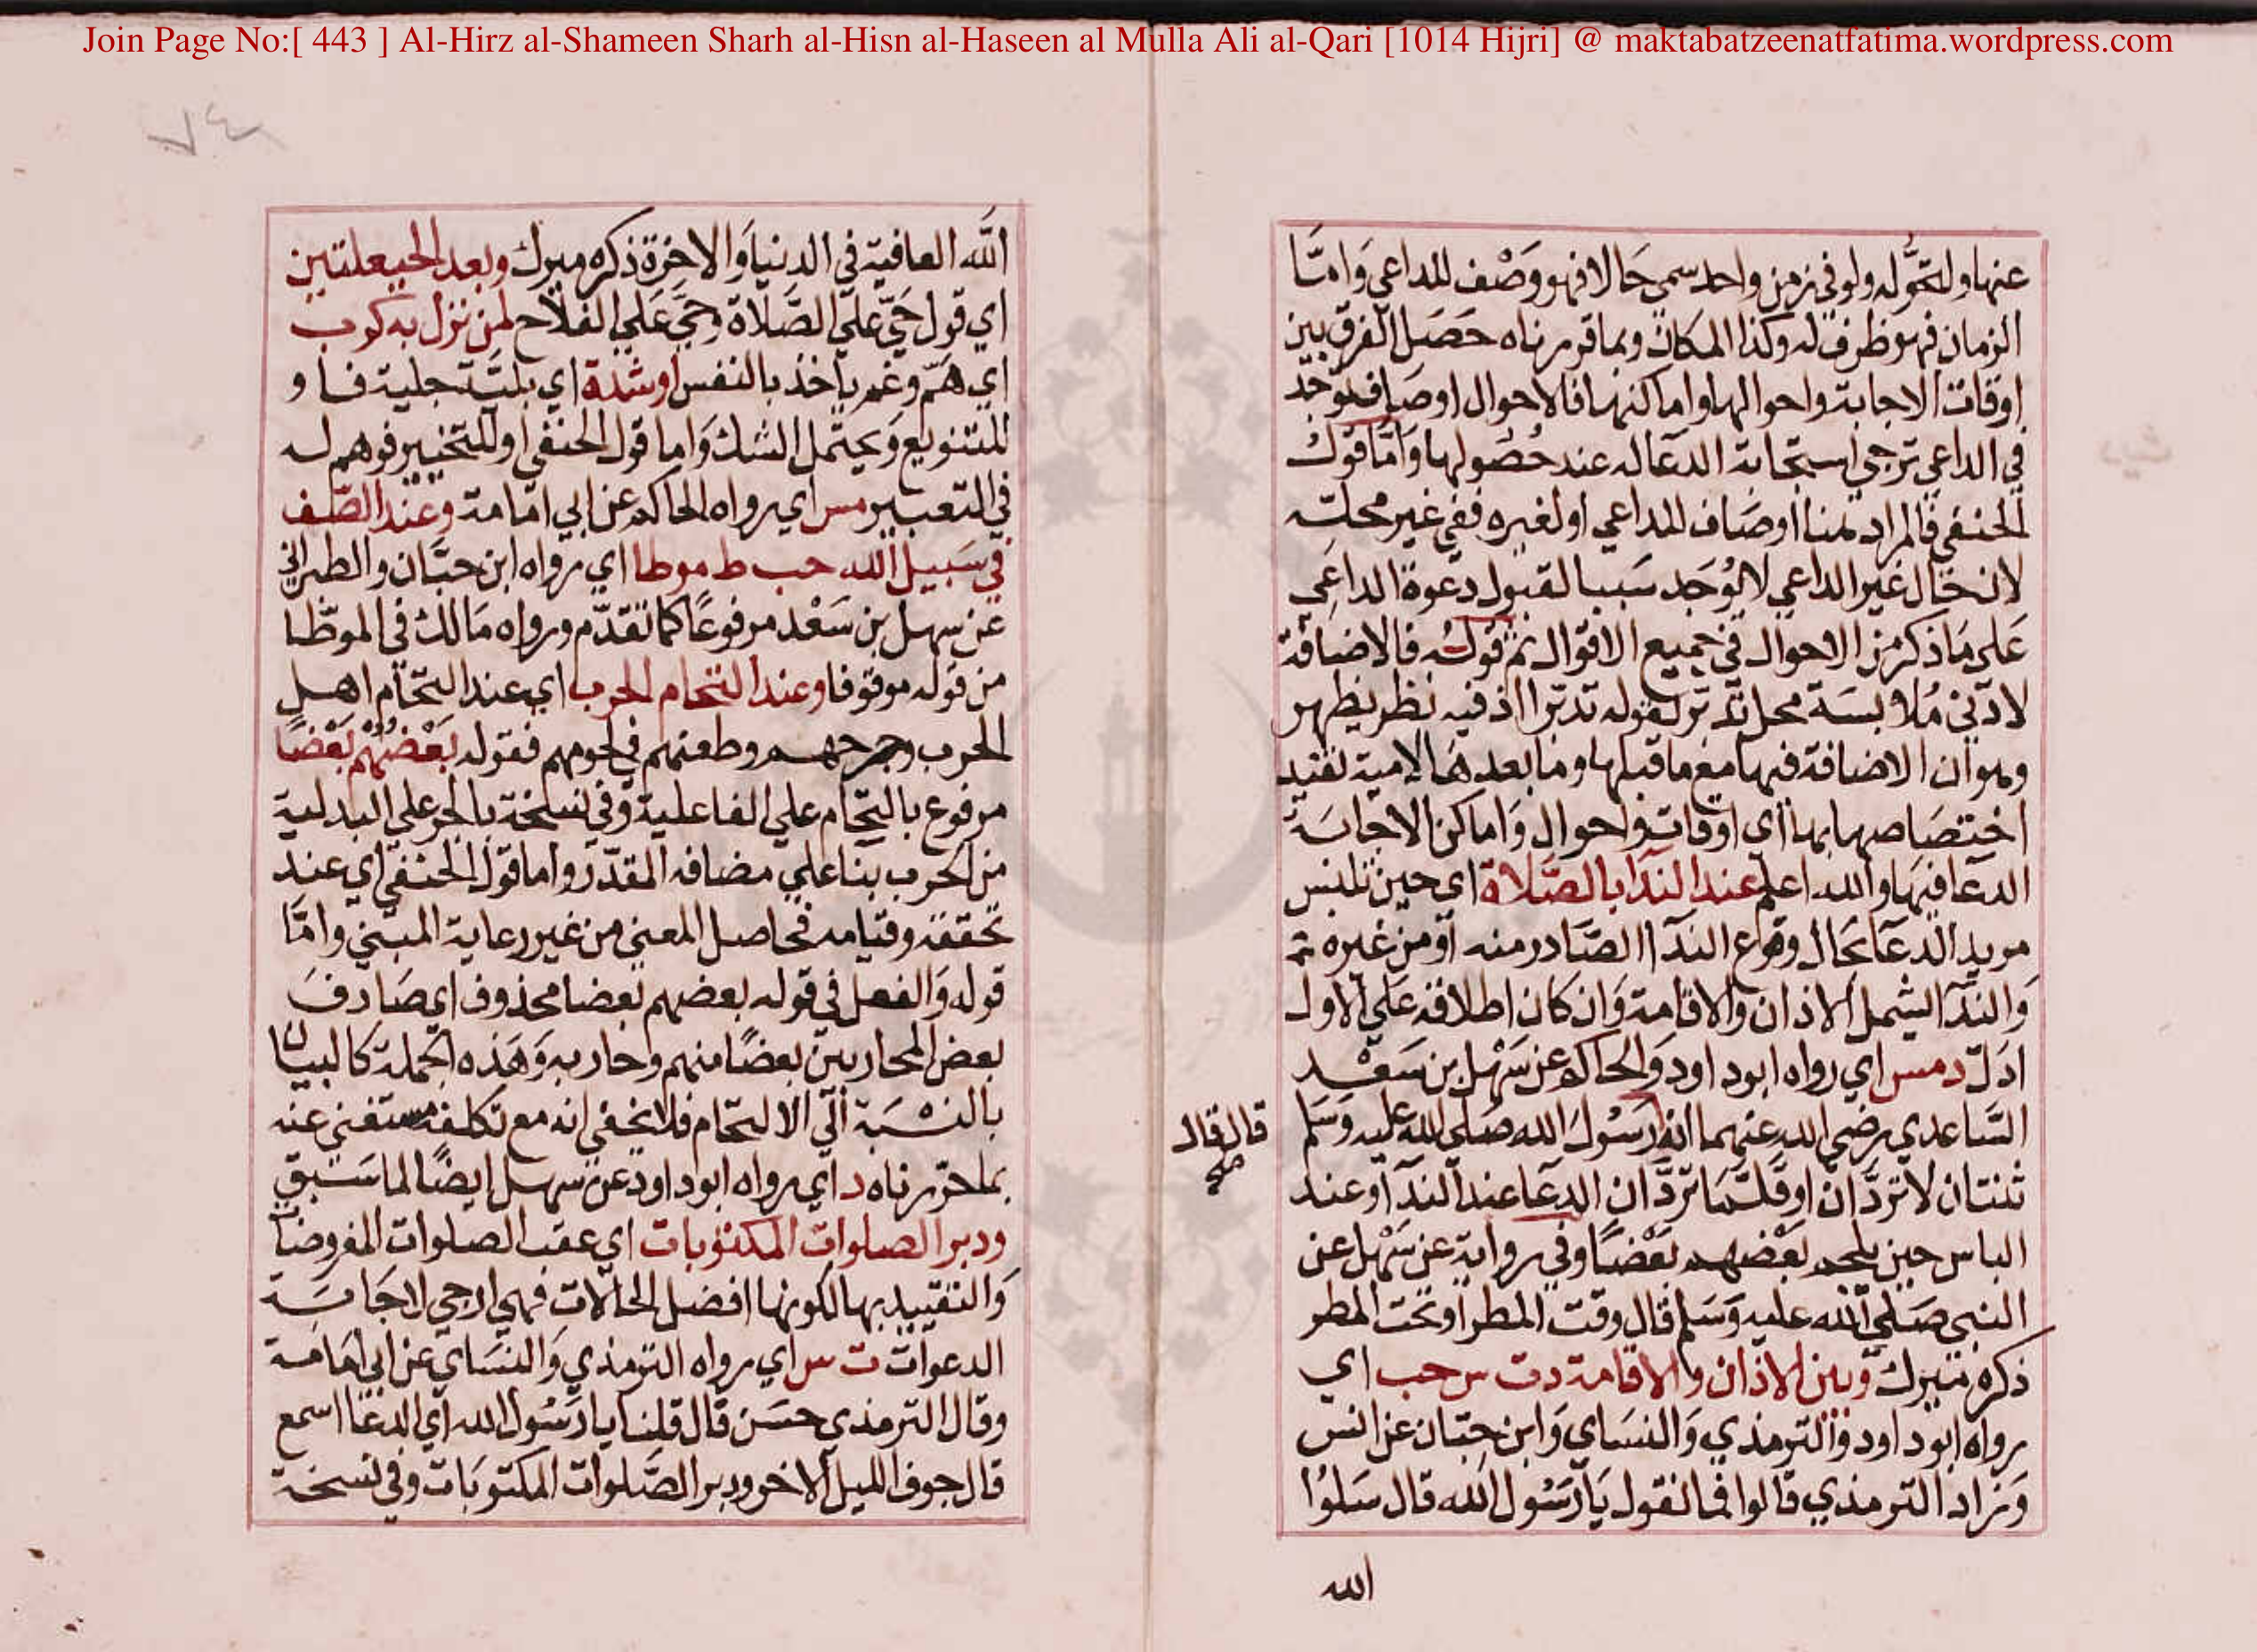 Join Page No:[ 443 ] Al-Hirz al-Shameen Sharh al-Hisn al-Haseen al Mulla Ali al-Qari [1014 Hijri] @ maktabatzeenatfatima.wordpress.com
عنها ولتحوّله ولو في زمن واحد سمي حَالا فهو وَصْف للداعي وَامَّا
الزمان فهو ظرف له وكذا المكان وبما قررناه حَصَل الفرق بين
اوقات الاجابة واحوالها واماكنها فالاحوال اوصاف توجد
في الداعي ترجي استجابة الدعا له عند حُصُولها وَامَّا قوْلُ
الحنفي فالمراد هنا اوصَاف للداعي او لغيره ففي غير محلّه
لان حال غير الداعي لا يُوجَد سَببا لقبول دعوة الداعي
عَلي مَا ذكر من الاحوال في جميع الاقوال ثم قولُه فالاضافة
لادني مُلابسَة محل تدبّر لقوله تدبّر اذ فيه نظر يظهر
وهو ان الاضافة فيها مع ما قبلها وما بعدهَا لامية تفيد
اختصَاصها بها اي اوقات واحوال وَاماكن الاجابَة
الدعَا فيهَا والله اعلم عند الندَا بالصَّلاة اي حين تلبس
مريد الدعَا بحال وقوع الندَا الصَّادر منه اوْ من غيره ثم
وَالندَا ليشمل الاذان والاقامة وَان كان اطلاقه عَلي الاول
ادَلّ د مس اي رواه ابو داود وَالحاكم عن سَهْل بن سَعْد
السَّاعدي رضي الله عنهما انه رَسُولُ الله صَلي الله عليه وَسَلم
قال قال صح
ثنتان لا تردَّان او قلَّمَا تردَّان الدعَا عند الندَا وعند
الباس حين يلحم بعْضهم بَعْضًا وفي رواية عن سَهْل عن
النبي صَلي الله عليه وَسَلم قال وقت المطر او تحت المطر
ذكره ميرك وبين الاذان والاقامة د ت س حب اي
رواه ابو داود والترمذي وَالنسَاي وَابن حِبّان عن انس
وَزاد الترمذي قالوا فما نقول يَا رَسُول الله قال سَلوُا
الله
الله العافية في الدنيا وَالاخرة ذكره ميرك وبعد الحيعلتين
اي قول حَيّ علَي الصَّلاة وحَيَّ عَلَي الفلاح لمن نزل به كرب
اي هَمّ وغم ياخذ بالنفس او شدة اي بليَّة جلية فاو
للتنويع وَيحتمل الشك وَاما قول الحنفي او للتخيير فوهم له
في التعبير مس اي رواه الحاكم عن ابي امَامة وعند الصَّف
في سَبيل الله حب ط موطا اي رواه ابن حبَّان والطبراني
عن سهل بن سَعْد مرفوعًا كما تقدّم ورواه مَالك في الموطّا
من قوله موقوفا وعند التحام الحرب اي عند التحَام اهل
الحرب وجرحهم وطعنهم في لحومهم فقوله بَعْضُهُمْ بَعْضًا
مرفوع بالتحَام علي الفاعلية وفي نسخة بالجر علي البدلية
من الحرب بنا علي مضافه المقدّر واما قول الحنفي اي عند
تحققه وقيامه فحاصل المعني من غير رعاية المبني وامَّا
قوله وَالفعل في قوله بعضهم بعضا محذوف اي صَادفَ
بعض المحاربين بعضًا منهم وحاربه وَهَذه الجملة كالبيان
بالنسْبَة الَي الالتحَام فلا يخفي انه مع تكلفه مستغني عنه
بما حرّرناه د اي رواه ابو داود عن سهل ايضًا لما سَبق
ودبر الصلوات المكتوبات اي عقب الصلوات المفروضَا
وَالتقييد بها لكونها افضل الحَالات فهي ارجي لاجَابَة
الدعوات ت س اي رواه الترمذي وَالنسَاي عن ابي امَامة
وقال الترمذي حسَن قال قلنا يا رَسُول الله اي الدعَا اسمع
قال جوف الليل الاخر ودبر الصَّلوات المكتوبَات وفي نسخة